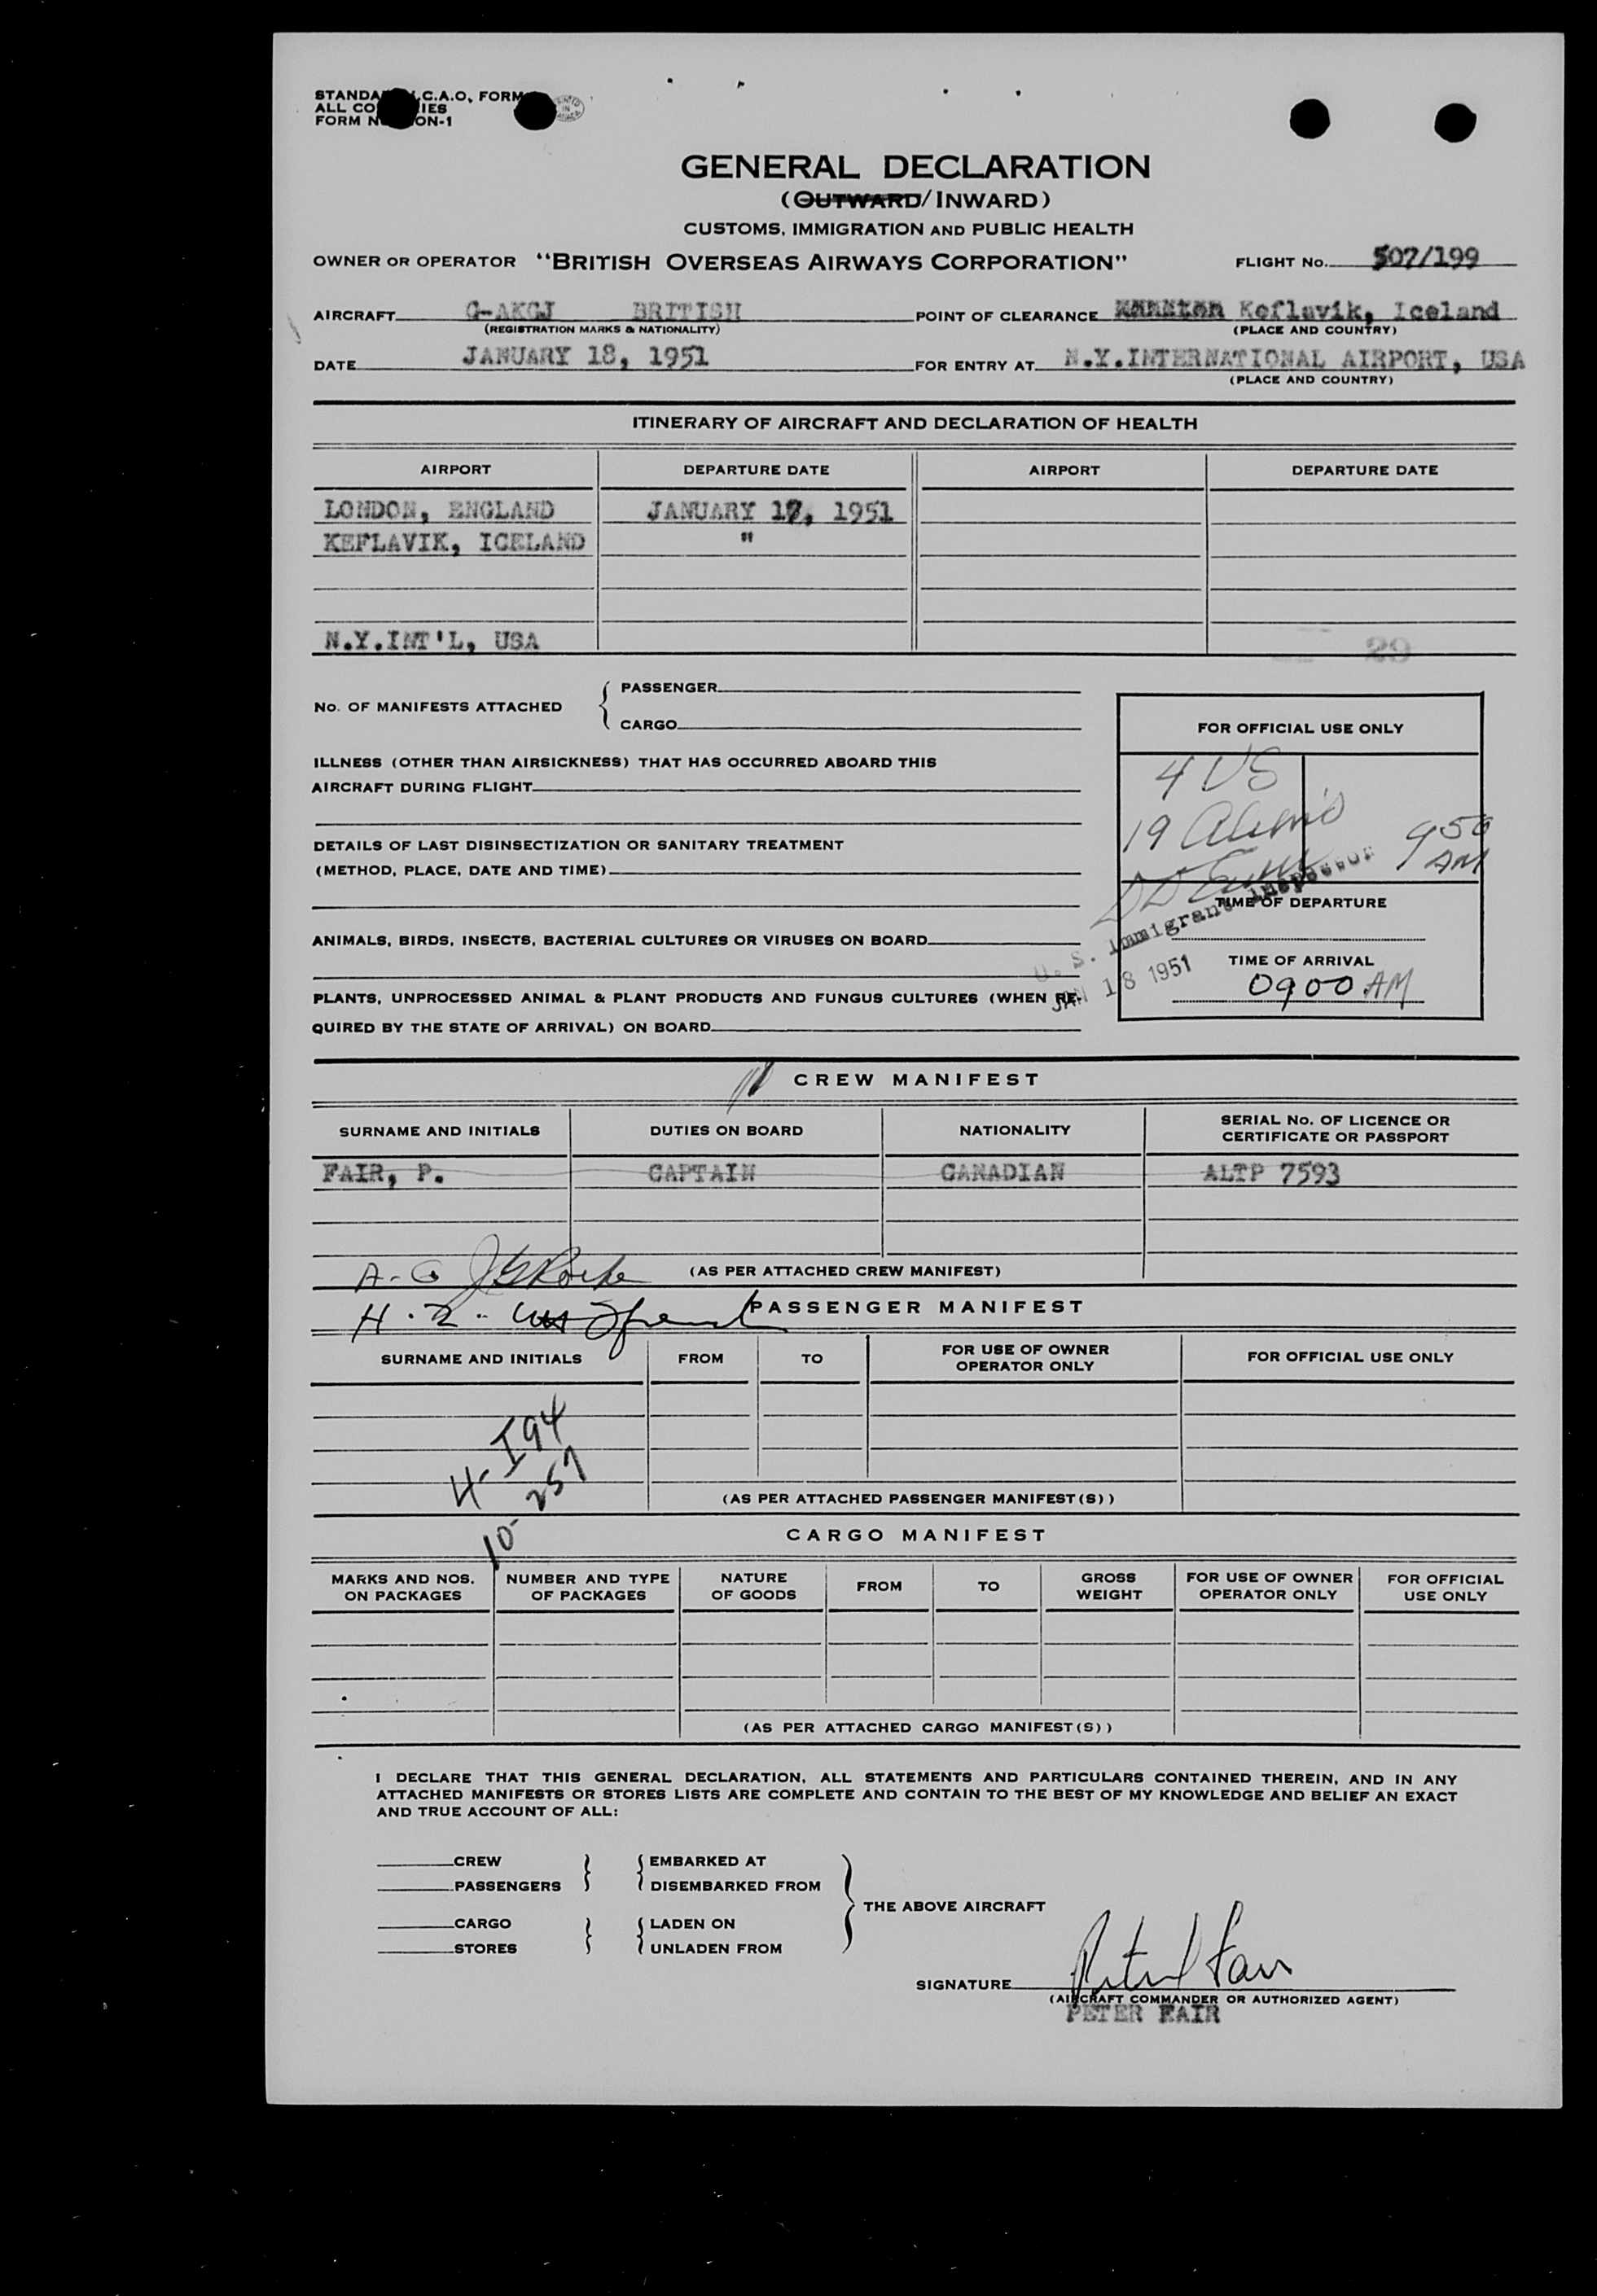 STANDA C.A.O. FORM
ALL CO IES
FORM N ON-1
GENERAL DECLARATION
(OUTWARD/INWARD)
CUSTOMS, IMMIGRATION AND PUBLIC HEALTH
OWNER OR OPERATOR "BRITISH OVERSEAS AIRWAYS CORPORATION" FLIGHT No. 507/199
AIRCRAFT G-AKGJ BRITISH POINT OF CLEARANCE Keflavik, Iceland
(REGISTRATION MARKS & NATIONALITY) (PLACE AND COUNTRY)
DATE JANUARY 18, 1951 FOR ENTRY AT N.Y.INTERNATIONAL AIRPORT, USA
(PLACE AND COUNTRY)
ITINERARY OF AIRCRAFT AND DECLARATION OF HEALTH
AIRPORT DEPARTURE DATE AIRPORT DEPARTURE DATE
LONDON, ENGLAND JANUARY 17, 1951
KEFLAVIK, ICELAND "
N.Y.INT'L, USA 29
No. OF MANIFESTS ATTACHED { PASSENGER
CARGO
FOR OFFICIAL USE ONLY
4 US
19 Aliens
950 AM
ILLNESS (OTHER THAN AIRSICKNESS) THAT HAS OCCURRED ABOARD THIS
AIRCRAFT DURING FLIGHT
DETAILS OF LAST DISINSECTIZATION OR SANITARY TREATMENT
(METHOD, PLACE, DATE AND TIME)
U. S. Immigrant Inspector
JAN 18 1951
TIME OF DEPARTURE
ANIMALS, BIRDS, INSECTS, BACTERIAL CULTURES OR VIRUSES ON BOARD
TIME OF ARRIVAL
0900 AM
PLANTS, UNPROCESSED ANIMAL & PLANT PRODUCTS AND FUNGUS CULTURES (WHEN RE-
QUIRED BY THE STATE OF ARRIVAL) ON BOARD
CREW MANIFEST
SURNAME AND INITIALS DUTIES ON BOARD NATIONALITY SERIAL No. OF LICENCE OR
CERTIFICATE OR PASSPORT
FAIR, P. CAPTAIN CANADIAN ALTP 7593
A-G
(AS PER ATTACHED CREW MANIFEST)
H.R.
PASSENGER MANIFEST
SURNAME AND INITIALS FROM TO FOR USE OF OWNER
OPERATOR ONLY FOR OFFICIAL USE ONLY
4- I94
10- 257
(AS PER ATTACHED PASSENGER MANIFEST(S))
CARGO MANIFEST
MARKS AND NOS.
ON PACKAGES NUMBER AND TYPE
OF PACKAGES NATURE
OF GOODS FROM TO GROSS
WEIGHT FOR USE OF OWNER
OPERATOR ONLY FOR OFFICIAL
USE ONLY
(AS PER ATTACHED CARGO MANIFEST(S))
I DECLARE THAT THIS GENERAL DECLARATION, ALL STATEMENTS AND PARTICULARS CONTAINED THEREIN, AND IN ANY
ATTACHED MANIFESTS OR STORES LISTS ARE COMPLETE AND CONTAIN TO THE BEST OF MY KNOWLEDGE AND BELIEF AN EXACT
AND TRUE ACCOUNT OF ALL:
CREW } { EMBARKED AT
PASSENGERS DISEMBARKED FROM
} THE ABOVE AIRCRAFT
CARGO } { LADEN ON
STORES UNLADEN FROM
SIGNATURE Peter Fair
(AIRCRAFT COMMANDER OR AUTHORIZED AGENT)
PETER FAIR